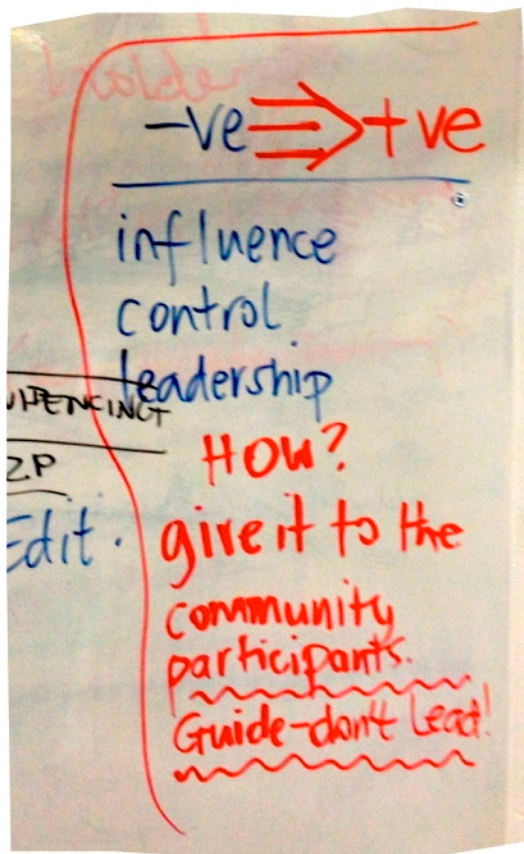 -ve ⇛ +ve
influence
control
leadership
How?
give it to the
community
participants.
Guide-don't Lead!
ZP
Edit.